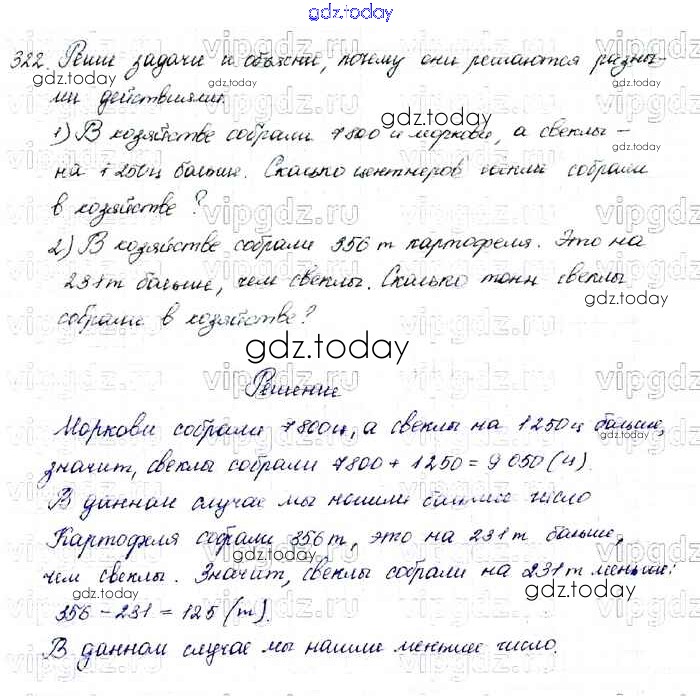 gdz.today
322. Реши задачи и объясни, почему они решаются разны-
ми действиями.
1) В хозяйстве собрали 7800 ц моркови, а свеклы -
на 1250ц больше. Сколько центнеров свеклы собрали
в хозяйстве?
2) В хозяйстве собрали 356 т картофеля. Это на
231т больше, чем свеклы. Сколько тонн свеклы
собрали в хозяйстве?
Решение
Моркови собрали 7800ц, а свеклы на 1250ц больше,
значит, свеклы собрали 7800 + 1250 = 9050 (ц).
В данном случае мы нашли большее число
Картофеля собрали 356т, это на 231т больше,
чем свеклы. Значит, свеклы собрали на 231т меньше:
356 - 231 = 125 (т).
В данном случае мы нашли меньшее число.
gdz.today
gdz.today
gdz.today
gdz.today
gdz.today
gdz.today
gdz.today
gdz.today
gdz.today
gdz.today
vipgdz.ru